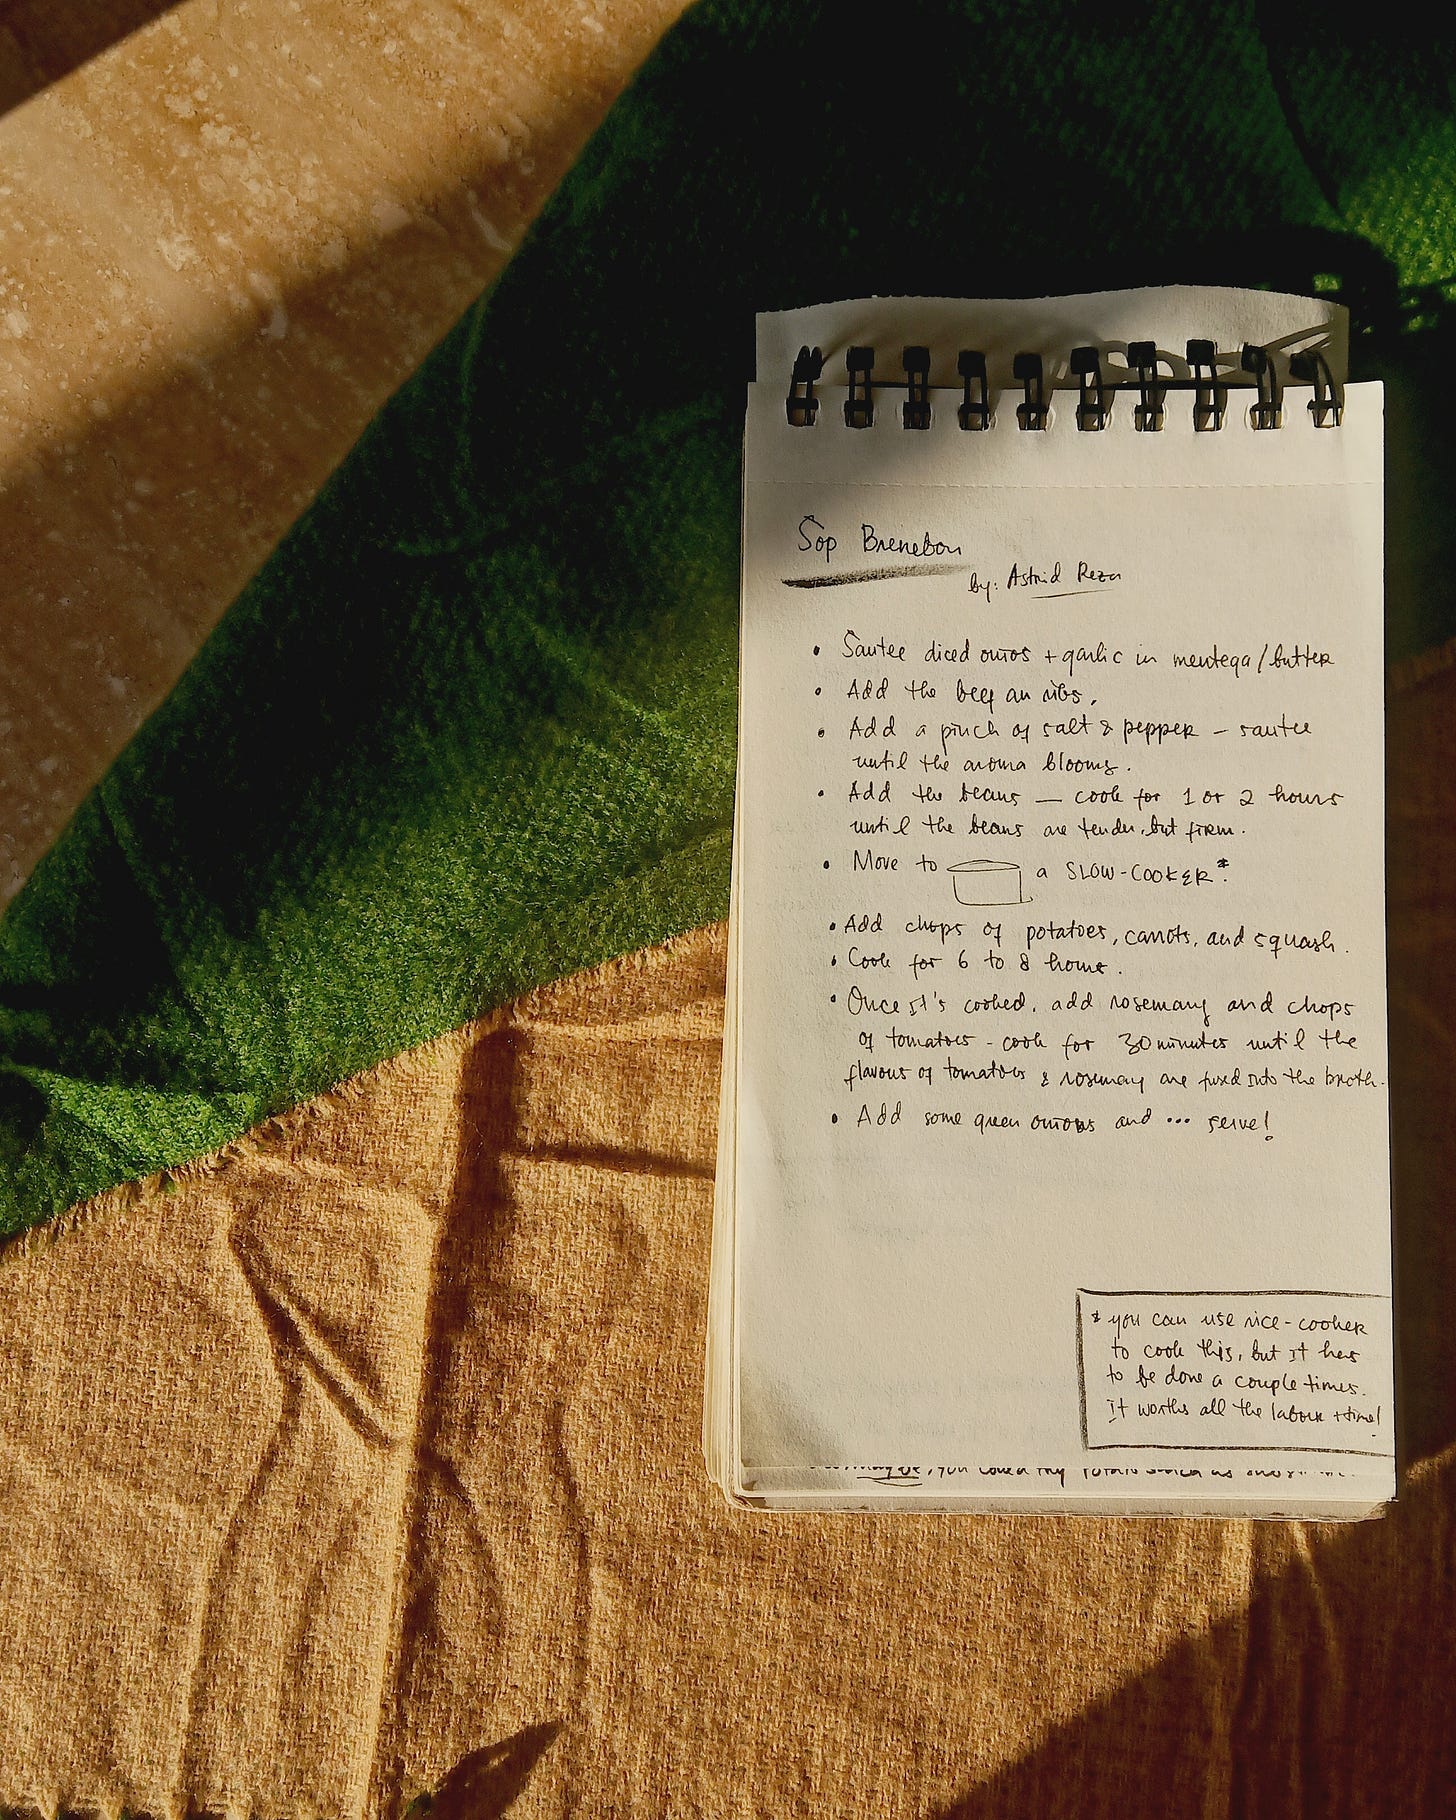 Sop Brenebon
by: Astrid Reza
• Sautee diced onios + garlic in mentega/butter
• Add the beef an ribs.
• Add a pinch of salt & pepper – sautee
until the aroma blooms.
• Add the beans — cook for 1 or 2 hours
until the beans are tender, but firm.
• Move to a SLOW-COOKER*
• Add chops of potatoes, carrots, and squash.
• Cook for 6 to 8 hours.
• Once it's cooked, add rosemary and chops
of tomatoes - cook for 30 minutes until the
flavours of tomatoes & rosemary are fused into the broth.
• Add some green onions and ... serve!
* you can use rice-cooker
to cook this, but it has
to be done a couple times.
It worths all the labour + time!
maybe, you could try potato